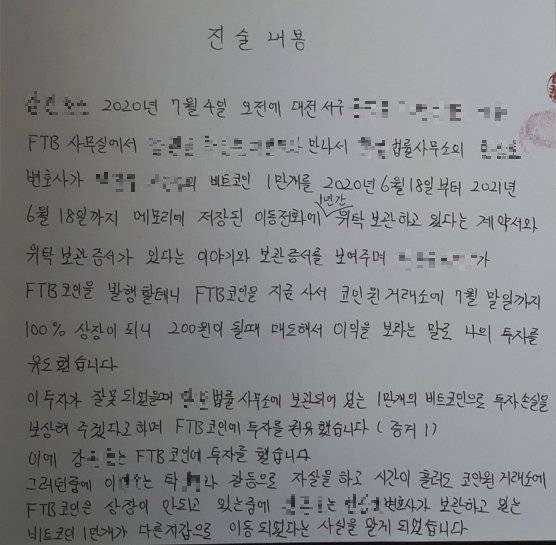 진술내용
2020년 7월4일 오전에 대전 서구
FTB 사무실에서 만나서 법률사무소의
변호사가 의 비트코인 1만개를 2020년6월18일부터 2021년
6월 18일까지 메모리에 저장된 이동전화에 1년간 위탁보관하고 있다는 계약서와
위탁 보관 증서가 있다는 이야기와 보관증서를 보여주며 가
FTB코인을 발행할테니 FTB코인을 지금 사서 코인원거래소에 7월 말일까지
100% 상장이 되니 200원이 될때 매도해서 이익을 보라는 말로 나의 투자를
유도했습니다
이 투자가 잘못 되었을때 법률사무소에 보관되어 있는 1만개의 비트코인으로 투자손실을
보상해 주겠다고하며 FTB코인에 투자를 권유했습니다 (증거 1)
이에 강 는 FTB코인에 투자를 했습니다
그러던중에 이 는 타 나 갈등으로 자살을 하고 시간이 흘러도 코인원거래소에
FTB코인은 상장이 안되고 있는중에 는 변호사가 보관하고 있는
비트코인 1만개가 다른지갑으로 이동 되었다는 사실을 알게 되었습니다